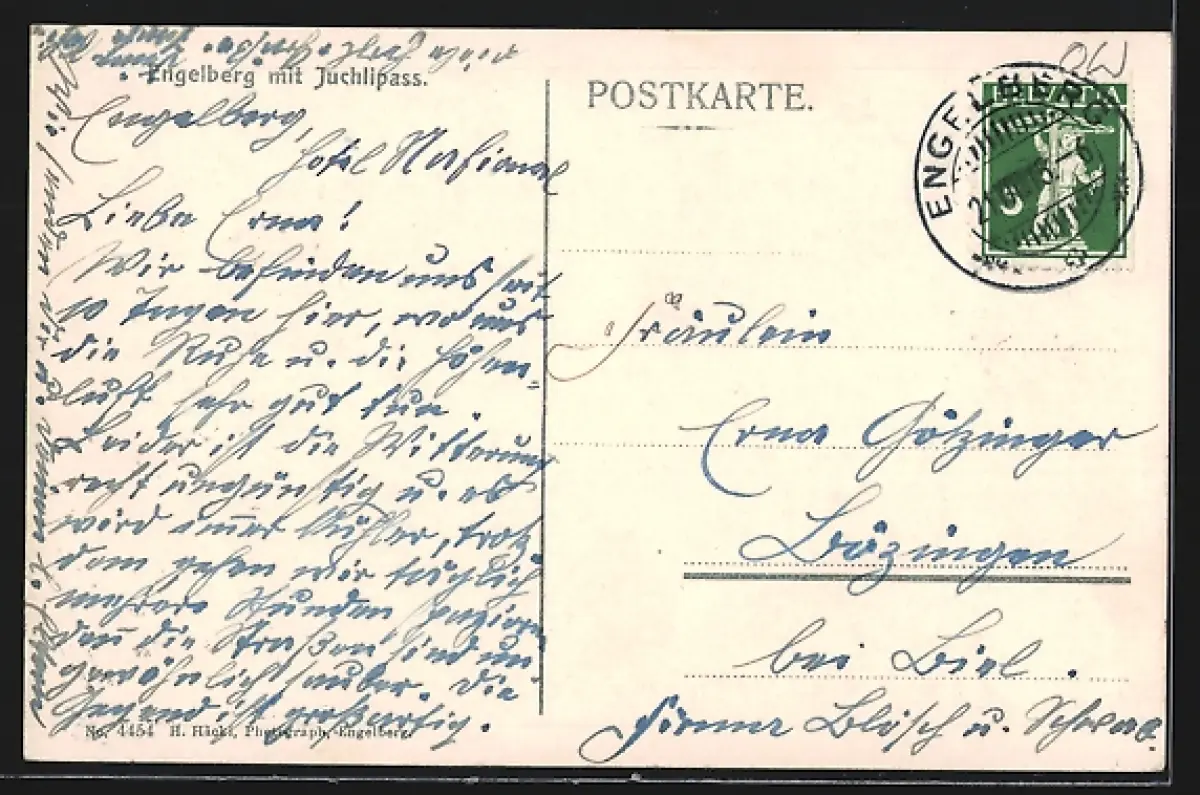 Engelberg mit Juchlipass.
POSTKARTE.
HELVETIA
ENGELBERG
Engelberg,
Hotel National
Liebe Erna!
Wir befinden uns seit
10 Tagen hier, wo uns
die Ruhe u. die Höhen=
luft sehr gut tun.
Leider ist die Witterung
recht ungünstig u. es
wird immer kühler, trotz
dem gehen wir täglich
mehrere Stunden spazieren
denn die Straßen sind un
gewöhnlich sauber. Die
Gegend ist großartig.
No. 4454 H. Häcki, Photograph, Engelberg.
Fräulein
Erna Götzinger
Bözingen
bei Biel.
Firma Blösch u. Schwab.
OW